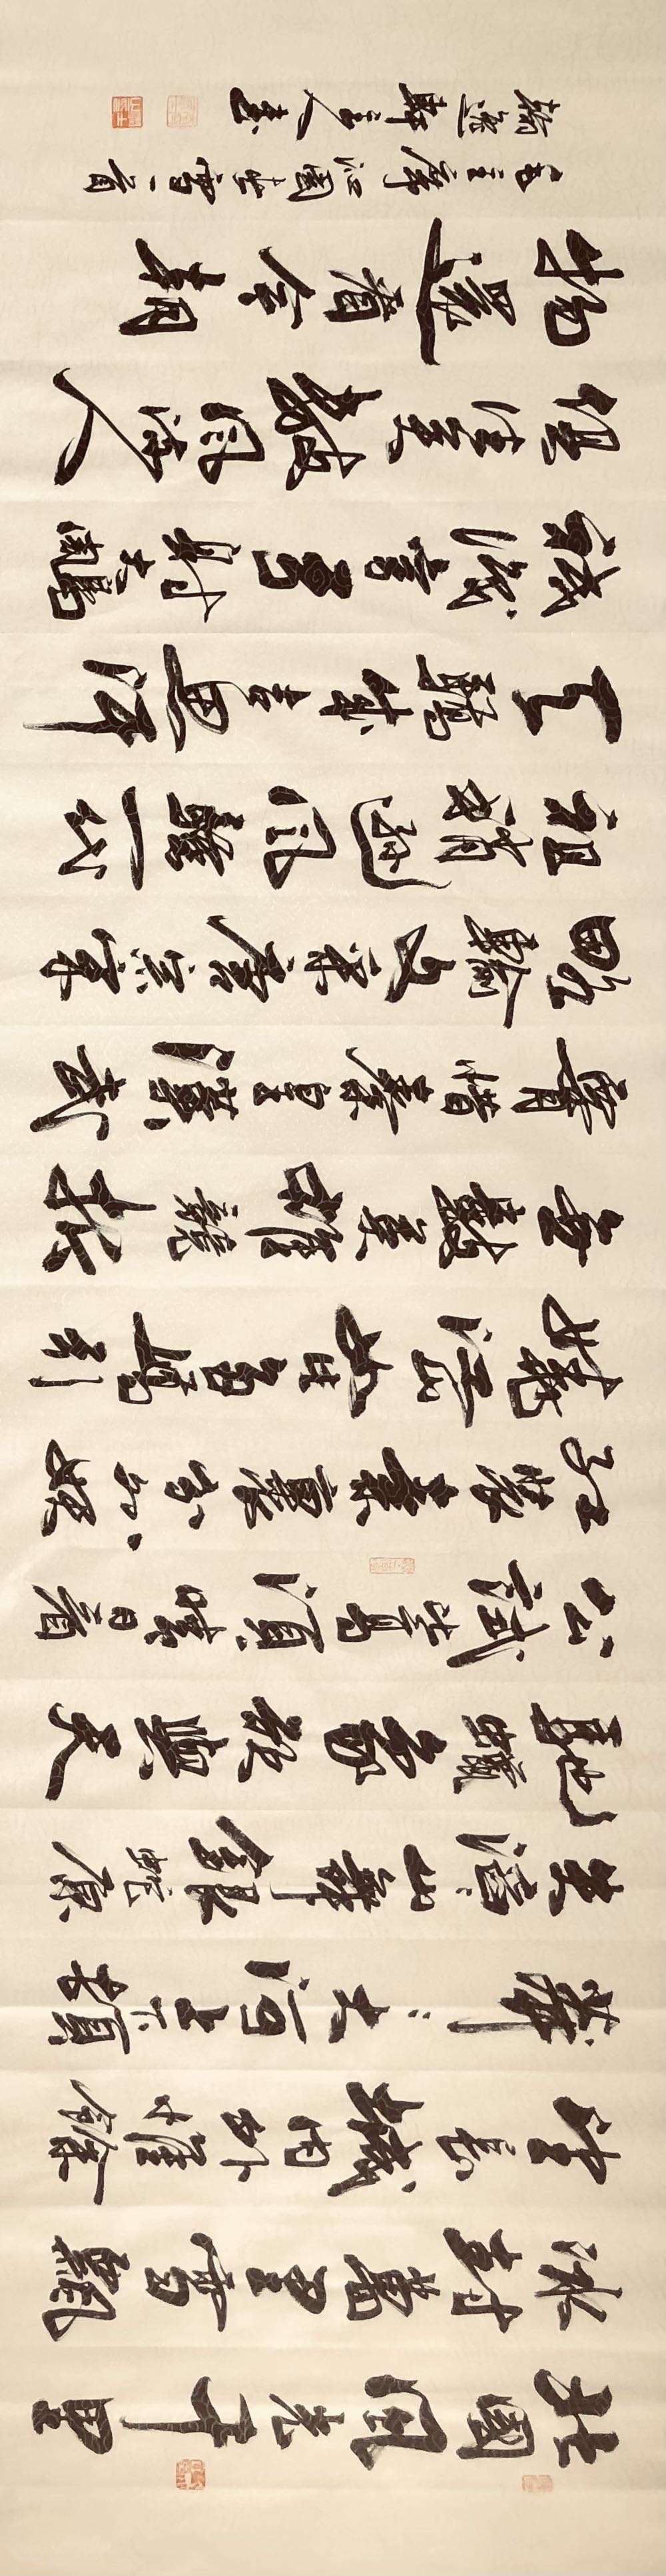 北國風光千里
冰封萬里雪飄
望長城內外惟餘
莽〻大河上下頓
失滔〻山舞銀蛇原
馳蠟象欲與天
公試比高須晴日看
紅裝素裹分外妖
嬈江山如此多嬌引
無數英雄競折
腰惜秦皇漢武
略輸文采唐宗宋
祖稍遜風騷一代
天驕成吉思汗
只識彎弓射大鵰
俱往矣數風流人
物還看今朝
毛主席沁園春雪一首
翰逸軒主人書